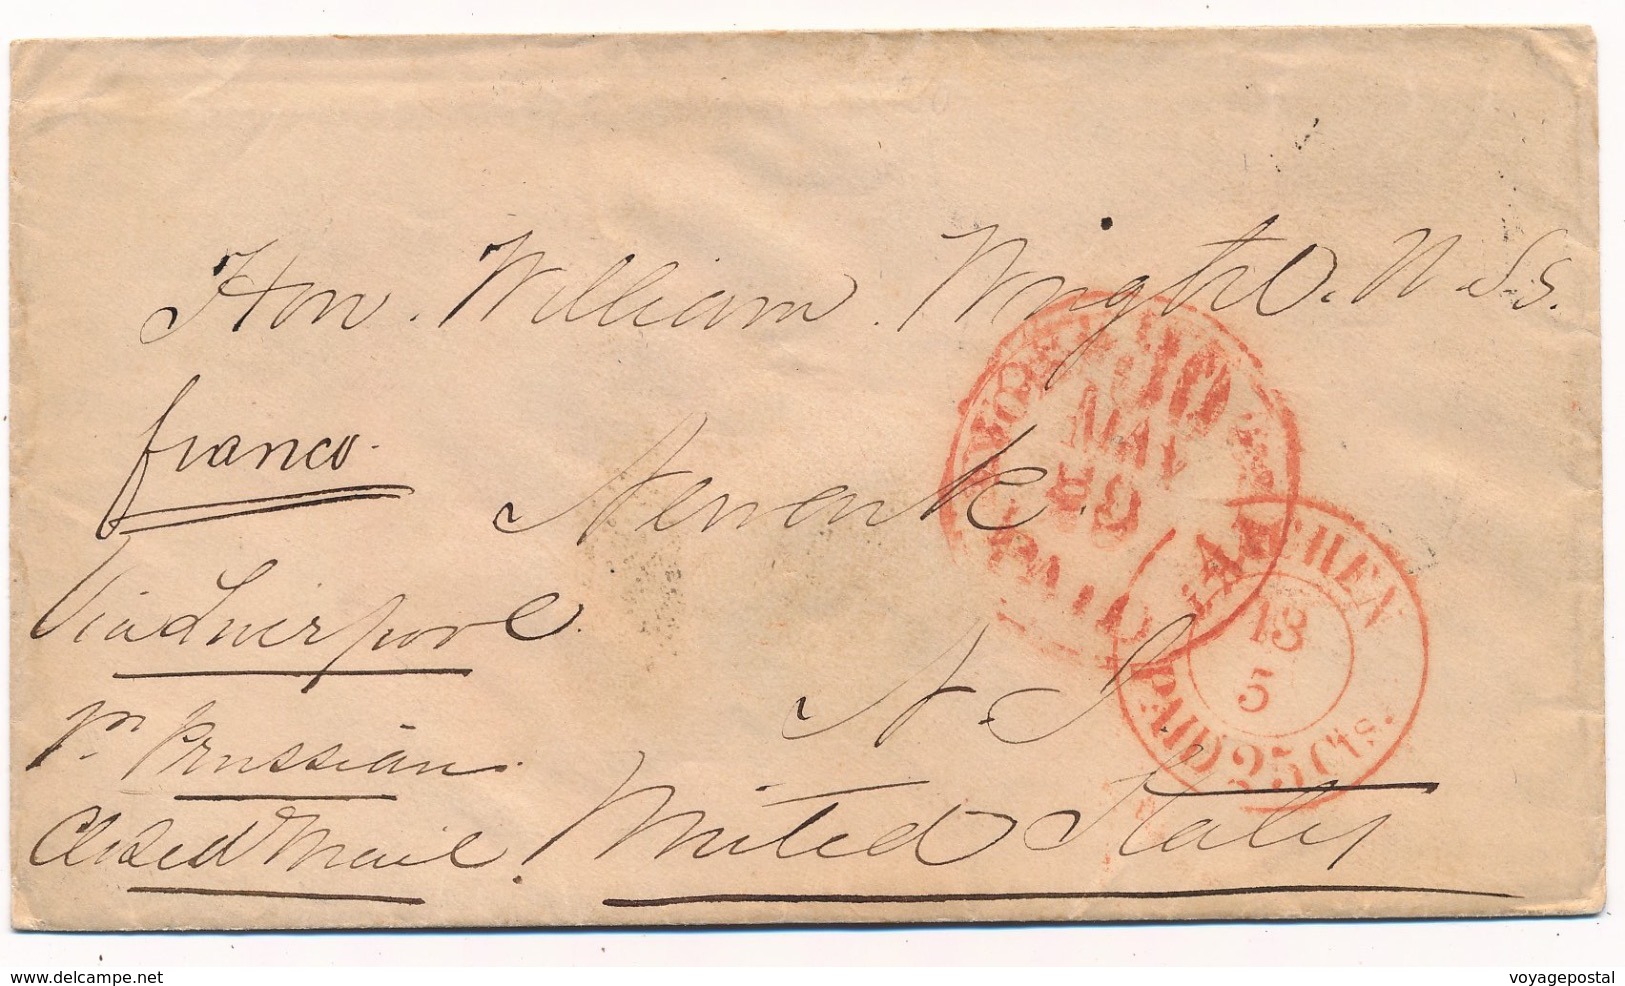 Hon. William Wright. U.S.S.
franco.
Newark.
Via Liverpool
pr Prussian
Closed Mail.
N. J.
United States
30
MAY
PAID
AACHEN
18
5
PAID 25 Cts.
www.delcampe.net
voyagepostal